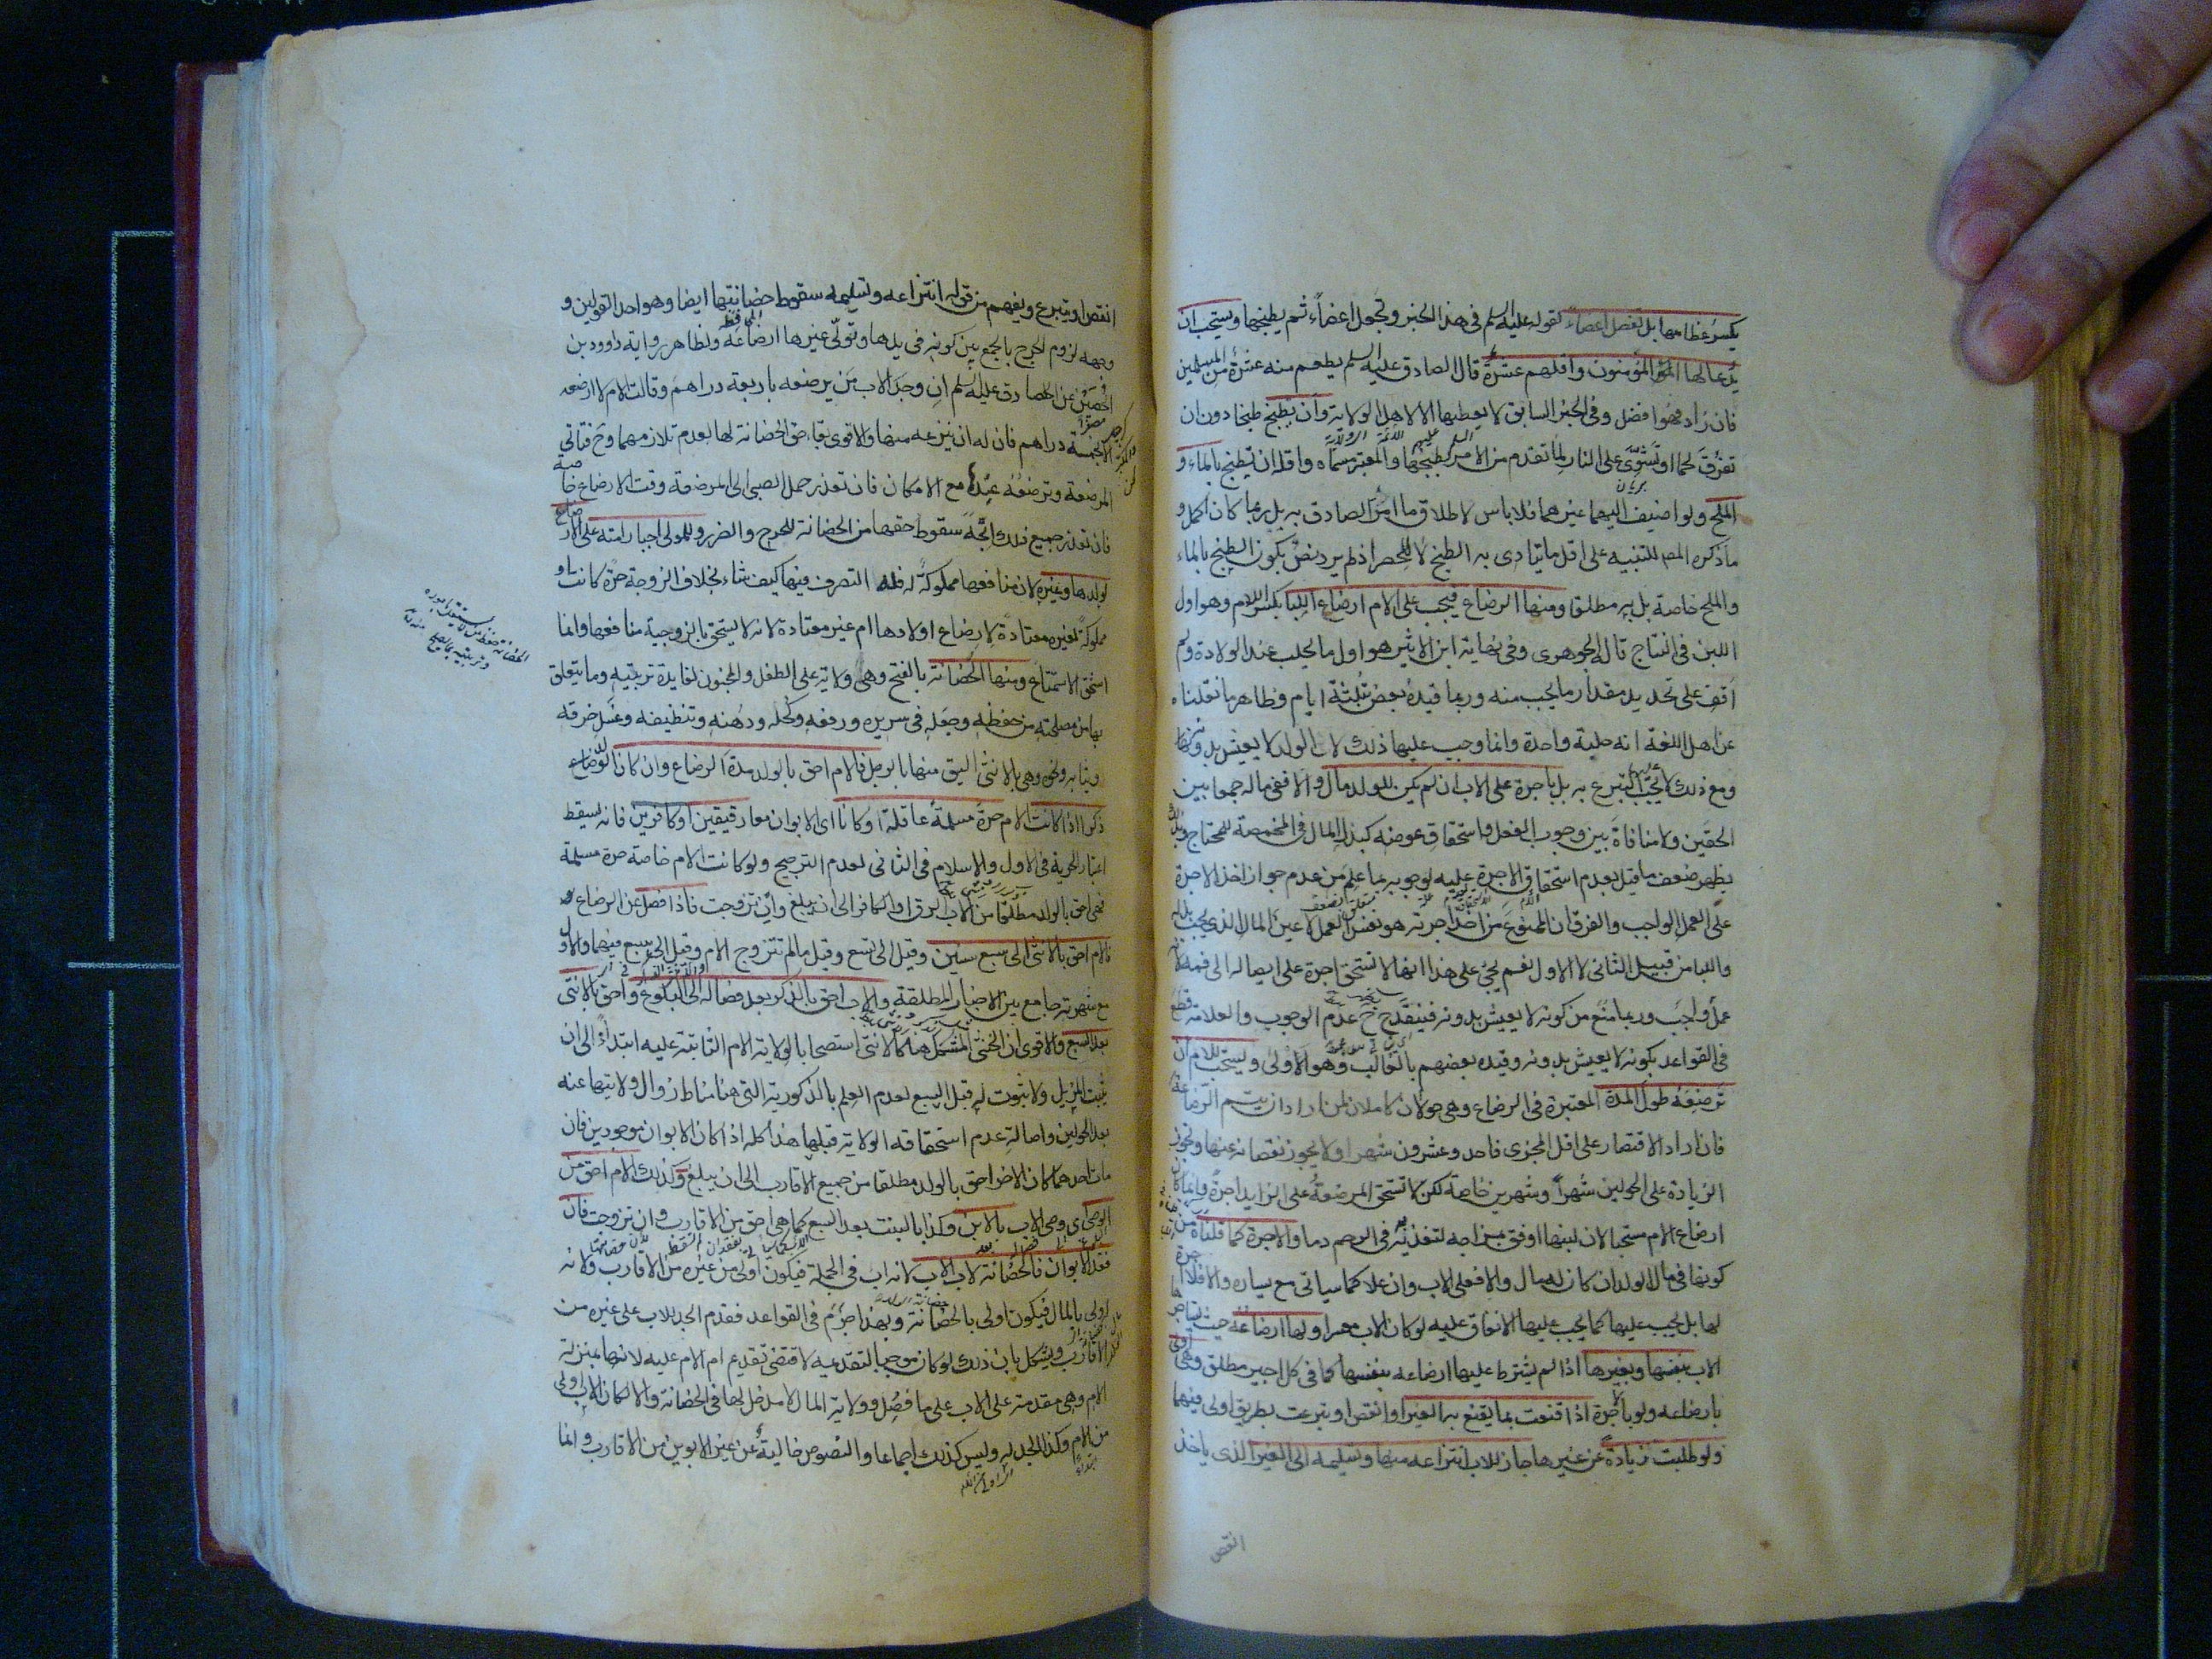 يكسر عظامها بل تفصل اعضاء لقوله عليه السلم في هذا الخبر وتجعل اعضاءً ثم يطبخها ويستحب ان
يدعا لها المؤمنون واقلهم عشرة قال الصادق عليه السلم يطعم منه عشرة من المسلمين
فان زاد فهوا فضل وفي الخبر السابق لا يعطيها الا لاهل الولاية وان يطبخ طبخا دون ان
تفرق لحما او تشوّى على النار لما تقدم من الامر بطبخها والمعتبر مسماه واقله ان يطبخ بالماء و
الملح ولو اضيف اليهما غيرهما فلا باس لاطلاق ما امر الصادق به بل ربما كان اكمل و
ما ذكره المصـ للتنبيه على اقل ما يتادى به الطبخ لا للحصر اذ لم يرد نص بكون الطبخ بالماء
والملح خاصة بل به مطلقا ومنها الرضاع فيجب على الام ارضاع اللبا بكسر اللام وهو اول
اللبن في النتاج قاله الجوهري وفي نهاية ابن الاثير هو اول ما يحلب عند الولادة ولم
اقف على تحديد مقدار ما يجب منه وربما قيده بعض بثلثة ايام وظاهر ما نقلناه
عن اهل اللغة انه حلبة واحدة وانما وجب عليها ذلك لان الولد لا يعيش بدونه
ومع ذلك لا يجب التبرع به بل باجرة على الاب ان لم يكن للولد مال والا ففي ماله جمعا بين
الحقين ولا منافاة بين وجوب الفعل واستحقاق عوضه كبذل المال في المخمصة للمحتاج وبذلك
يظهر ضعف ما قيل بعدم استحقاق الاجرة عليه لوجوبه بما علم من عدم جواز اخذ الاجرة
على العمل الواجب والفرق ان الممنوع من اخذ اجرته هو نفس العمل لا عين المال الذي يجب بذله
واللبا من قبيل الثاني لا الاول نعم يجئ على هذا انها لا تستحق اجرة على ايصاله الى فمه لانه
عمل واجب وربما منع من كونه لا يعيش بدونه فينقدح ح عدم الوجوب والعلامة قطع
في القواعد بكونه لا يعيش بدونه وقيده بعضهم بالغالب وهو الاولى ويستحب للام ان
ترضعه طول المدة المعتبرة في الرضاع وهي حولان كاملان لمن اراد ان يتم الرضاعة
فان اراد الاقتصار على اقل المجزي فاحد وعشرون شهرا ولا يجوز نقصانه عنها وتجوز
الزيادة على الحولين شهراً وشهرين خاصة لكن لا تستحق المرضعة على الزايد اجرة وانما كان
ارضاع الام مستحبا لان لبنها اوفق بمزاجه لتغذيه به في الرحم دما والاجرة كما قلناه من
كونها في مال الولد ان كان له مال والا فعلى الاب وان علا كما سياتي مع يساره والا فلا اجرة
لها بل يجب عليها كما يجب عليها الانفاق عليه لو كان الاب معسرا ولها ارضاعه حيث يستاجرها
الاب بنفسها وبغيرها اذا لم يشترط عليها ارضاعه بنفسها كما في كل اجير مطلق وهي اولى
بارضاعه ولو بالاجرة اذا قنعت بما يقنع به الغير او انقص او تبرعت بطريق اولى فيهما
ولو طلبت زيادة عن غيرها جاز للاب انتزاعه منها وتسليمه الى الغير الذي ياخذ
انقص
انقص او يتبرع ويفهم من قوله انتزاعه وتسليمه سقوط حضانتها ايضا وهو احد القولين و
وجهه لزوم الحرج بالجمع بين كونه في يدها وتولّى غيرها ارضاعه ولظاهر رواية داوود بن
الحصين عن الصادق عليه السلم ان وجد الاب من يرضعه باربعة دراهم وقالت الام لا ارضعه
الا بخمسة دراهم فان له ان ينزعه منها والاقوى بقاء حق الحضانة لها لعدم تلازمهما وح فتاتي
المرضعة وترضعه عندها مع الامكان فان تعذر حمل الصبي الى المرضعة وقت الارضاع خاصة
فان تعذر جميع ذلك اتجه سقوط حقها من الحضانة للحرج والضرر وللمولى اجبار امته على الارضاع
لولدها وغيره لان منافعها مملوكة له فله التصرف فيها كيف شاء بخلاف الزوجة حرة كانت او
مملوكة لغيره معتادة لارضاع اولادها ام غير معتادة لانه لا يستحق بالزوجية منافعها وانما
استحق الاستمتاع ومنها الحضانة بالفتح وهي ولاية على الطفل والمجنون لفايدة تربيته وما يتعلق
بها من مصلحته من حفظه وجعله في سريره ورفعه وكحله ودهنه وتنظيفه وغسل خرقه
وثيابه ونحوه وهي بالانثى اليق منها بالرجل فالام احق بالولد مدة الرضاع وان كان الولد
ذكرا اذا كانت الام حرة مسلمة عاقلة او كانا اي الابوان معا رقيقين او كافرين فانه يسقط
اعتبار الحرية في الاول والاسلام في الثاني لعدم الترجيح ولو كانت الام خاصة حرة مسلمة
فهي احق بالولد مطلقا من الاب الرق او الكافر الى ان يبلغ وان تزوجت فاذا فصل عن الرضاع
فالام احق بالانثى الى سبع سنين وقيل الى تسع وقيل ما لم تتزوج الام وقيل الى سبع فيهما والاول
مع شهرته جامع بين الاخبار المطلقة والاب احق بالذكر بعد فصاله الى البلوغ واحق بالانثى
بعد السبع والاقوى ان الخنثى المشكل هنا كالانثى استصحابا لولاية الام الثابتة عليه ابتداءً الى ان
يثبت المزيل ولا ثبوت له قبل السبع لعدم العلم بالذكورية التي هي مناط زوال ولايتها عنه
بعد الحولين واصالة عدم استحقاقه الولاية قبلها هذا كله اذا كان الابوان موجودين فان
مات احدهما كان الاخر احق بالولد مطلقا من جميع الاقارب الى ان يبلغ وكذلك الام احق من
الوصي اي وصي الاب بالابن وكذا بالبنت بعد السبع كما هي احق من الاقارب وان تزوجت فان
فقد الابوان فالحضانة لاب الاب لانه اب في الجملة فيكون اولى من غيره من الاقارب ولانه
اولى بالمال فيكون اولى بالحضانة وبهذا جزم في القواعد فقدم الجد للاب على غيره من
الاقارب ويشكل بان ذلك لو كان موجبا لتقديمه لاقتضى تقديم ام الام عليه لانها بمنزلة
الام وهي مقدمة على الاب على ما فصل وولاية المال لا مدخل لها في الحضانة والا لكان الاب اولى
من الام وكذا الجد له وليس كذلك اجماعا والنصوص خالية عن غير الابوين من الاقارب وانما